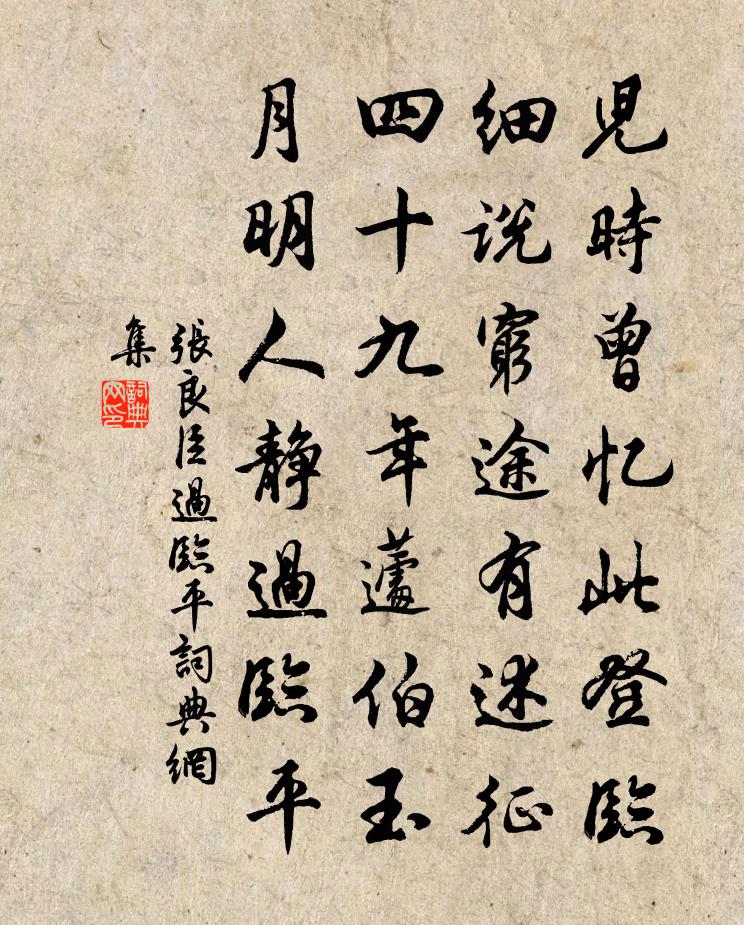 児時曾忆此登臨
細説窮途有述征
四十九年蘧伯玉
月明人静過臨平
張良臣過臨平詞典網
集
詞典
网印